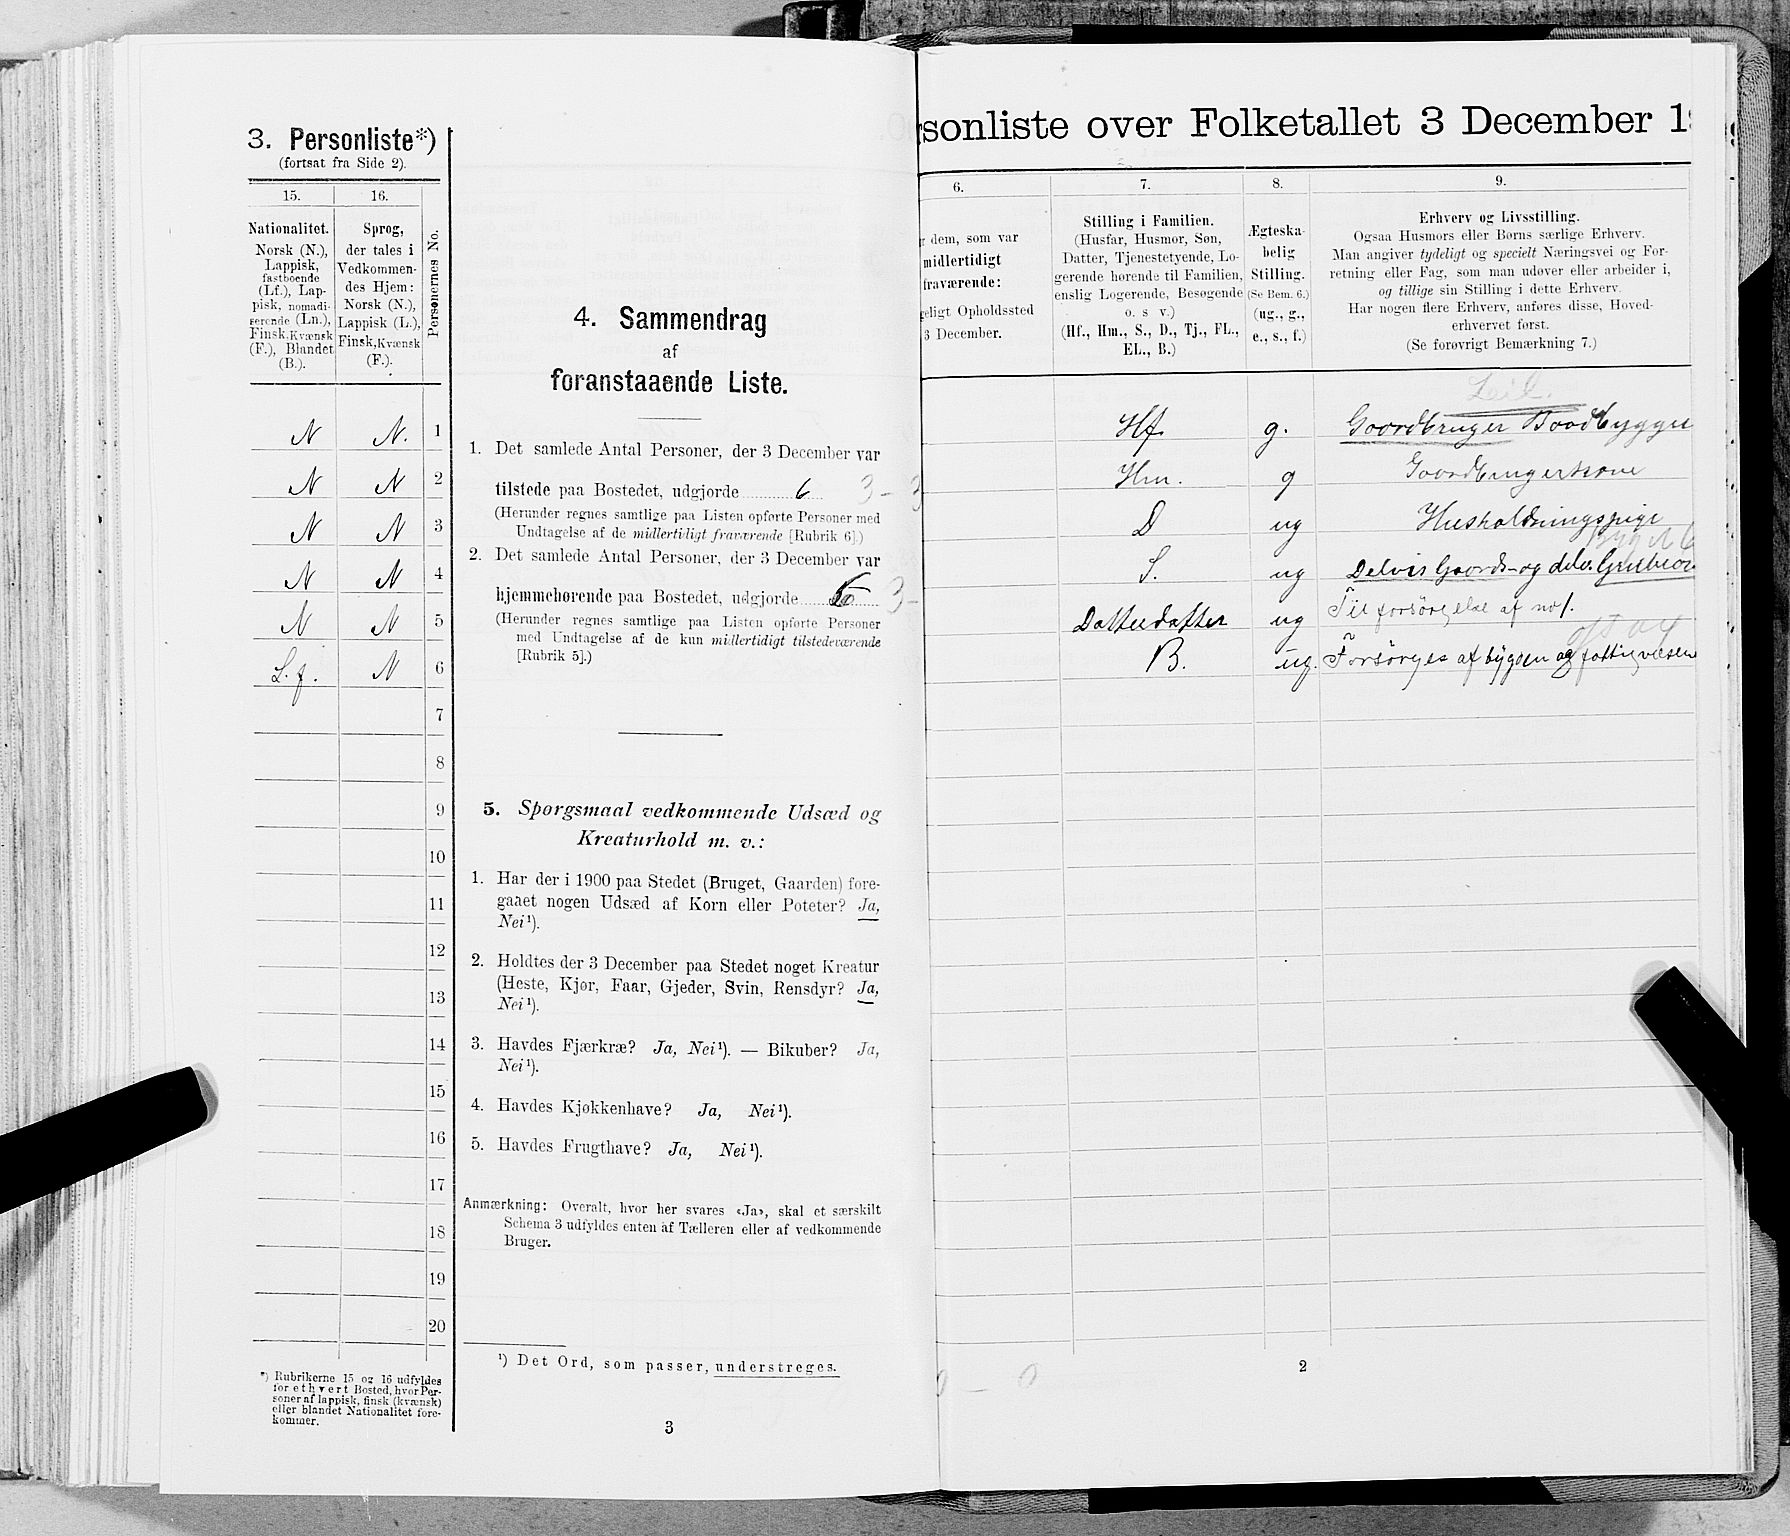 3. Personliste*)
(fortsat fra Side 2).
15.
16.
Personernes No.
Nationalitet.
Norsk (N.),
Lappisk,
fastboende
(Lf.), Lap-
pisk, nomadi-
serende (Ln.),
Finsk, Kvænsk
(F.), Blandet
(B.).
Sprog,
der tales i
Vedkommen-
des Hjem:
Norsk (N.),
Lappisk (L.),
Finsk, Kvænsk
(F.).
N N. 1
N N 2
N N 3
N N 4
N N 5
L.f. N 6
7
8
9
10
11
12
13
14
15
16
17
18
19
20
*) Rubrikerne 15 og 16 udfyldes
for ethvert Bosted, hvor Per-
soner af lappisk, finsk (kvænsk)
eller blandet Nationalitet fore-
kommer.
4. Sammendrag
af
foranstaaende Liste.
1. Det samlede Antal Personer, der 3 December var
tilstede paa Bostedet, udgjorde 6 3 - 3
(Herunder regnes samtlige paa Listen opførte Personer med
Undtagelse af de midlertidigt fraværende [Rubrik 6].)
2. Det samlede Antal Personer, der 3 December var
hjemmehørende paa Bostedet, udgjorde 5 3 -
(Herunder regnes samtlige paa Listen opførte Personer
med Undtagelse af de kun midlertidigt tilstedeværende
[Rubrik 5].)
5. Spørgsmaal vedkommende Udsæd og
Kreaturhold m. v.:
1. Har der i 1900 paa Stedet (Bruget, Gaarden) fore-
gaaet nogen Udsæd af Korn eller Poteter? Ja,
Nei¹).
2. Holdtes der 3 December paa Stedet noget Kreatur
(Heste, Kjør, Faar, Gjeder, Svin, Rensdyr? Ja,
Nei¹).
3. Havdes Fjærkræ? Ja, Nei¹). — Bikuber? Ja,
Nei¹).
4. Havdes Kjøkkenhave? Ja, Nei¹).
5. Havdes Frugthave? Ja, Nei¹).
Anmærkning: Overalt, hvor her svares «Ja», skal et særskilt
Schema 3 udfyldes enten af Tælleren eller af vedkommende
Bruger.
¹) Det Ord, som passer, understreges.
3
rsonliste over Folketallet 3 December 1
6.
7.
8.
9.
dem, som var
midlertidigt
fraværende:
geligt Opholdssted
3 December.
Stilling i Familien.
(Husfar, Husmor, Søn,
Datter, Tjenestetyende, Lo-
gerende hørende til Familien,
enslig Logerende, Besøgende
o. s v.)
(Hf., Hm., S., D., Tj., FL.,
EL., B.)
Ægteska-
belig
Stilling.
(Se Bem. 6.)
(ug., g.,
e., s., f.)
Erhverv og Livsstilling.
Ogsaa Husmors eller Børns særlige Erhverv.
Man angiver tydeligt og specielt Næringsvei og For-
retning eller Fag, som man udøver eller arbeider i,
og tillige sin Stilling i dette Erhverv.
Har nogen flere Erhverv, anføres disse, Hoved-
erhvervet først.
(Se forøvrigt Bemærkning 7.)
Hf. g. Gaardbruger Baadbygger
Hm. g Gaardbrugerkone
D ug Husholdningspige
S. ug Delvis Gaards- og delv.
Datterdatter ug Til forsørgelse af no 1.
B. ug. Forsørges af bygden og fattigvæsen
0 - 0
2